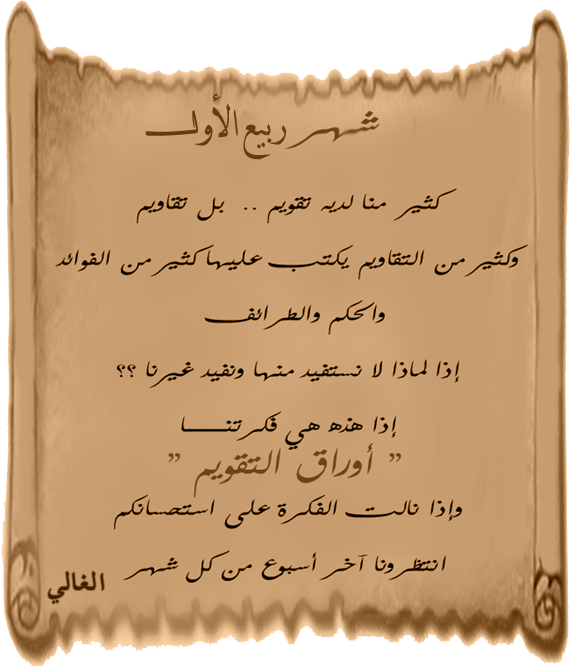 شهر ربيع الأول
كثير منا لديه تقويم .. بل تقاويم
وكثير من التقاويم يكتب عليها كثير من الفوائد
والحكم والطرائف
إذا لماذا لا نستفيد منها ونفيد غيرنا ؟؟
إذا هذه هي فكرتنـــــا
" أوراق التقويم "
وإذا نالت الفكرة على استحسانكم
انتظرونا آخر أسبوع من كل شهر
الغالي